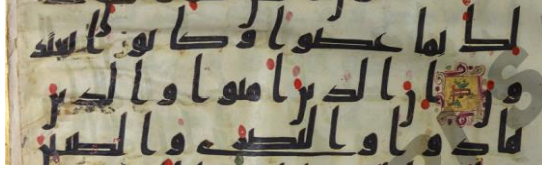 لك بما عصوا وكانوا يعتد
ون ان الذين امنوا والذين
هادوا والنصرى والصبين